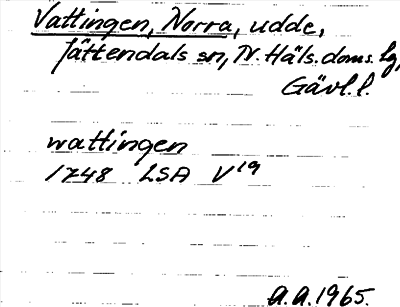 Vattingen, Norra, udde,
Jättendals sn, N. Häls. doms. lg,
Gävl. l.
wattingen
1748 LSA V19
A.A. 1965.